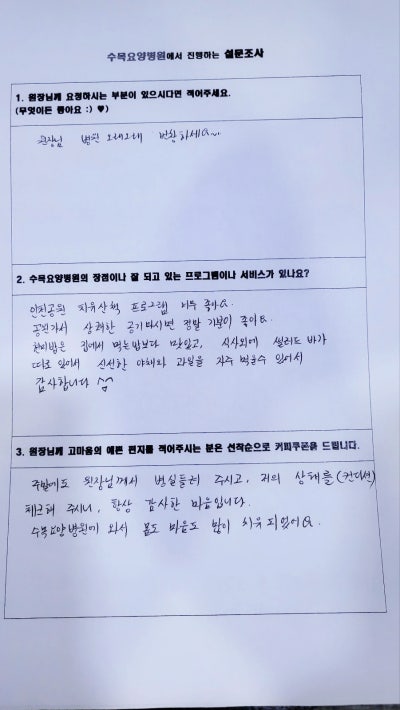 수목요양병원에서 진행하는 설문조사
1. 원장님께 요청하시는 부분이 있으시다면 적어주세요.
(무엇이든 좋아요 :) ♥)
원장님 병원 오래오래 번창하세요~..
2. 수목요양병원의 장점이나 잘 되고 있는 프로그램이나 서비스가 있나요?
인천공원 치유산책 프로그램 너무 좋아요.
공원가서 상쾌한 공기마시면 정말 기분이 좋아요.
현미밥은 집에서 먹는밥보다 맛있고, 식사외에 샐러드 바가
따로 있어서 신선한 야채와 과일을 자주 먹을수 있어서
감사합니다 ^^
3. 원장님께 고마움의 예쁜 편지를 적어주시는 분은 선착순으로 커피쿠폰을 드립니다.
주말에도 원장님께서 병실들러 주시고, 저의 상태를(컨디션)
체크해 주시니, 항상 감사한 마음입니다.
수목요양병원에 와서 몸도 마음도 많이 치유 되었어요.